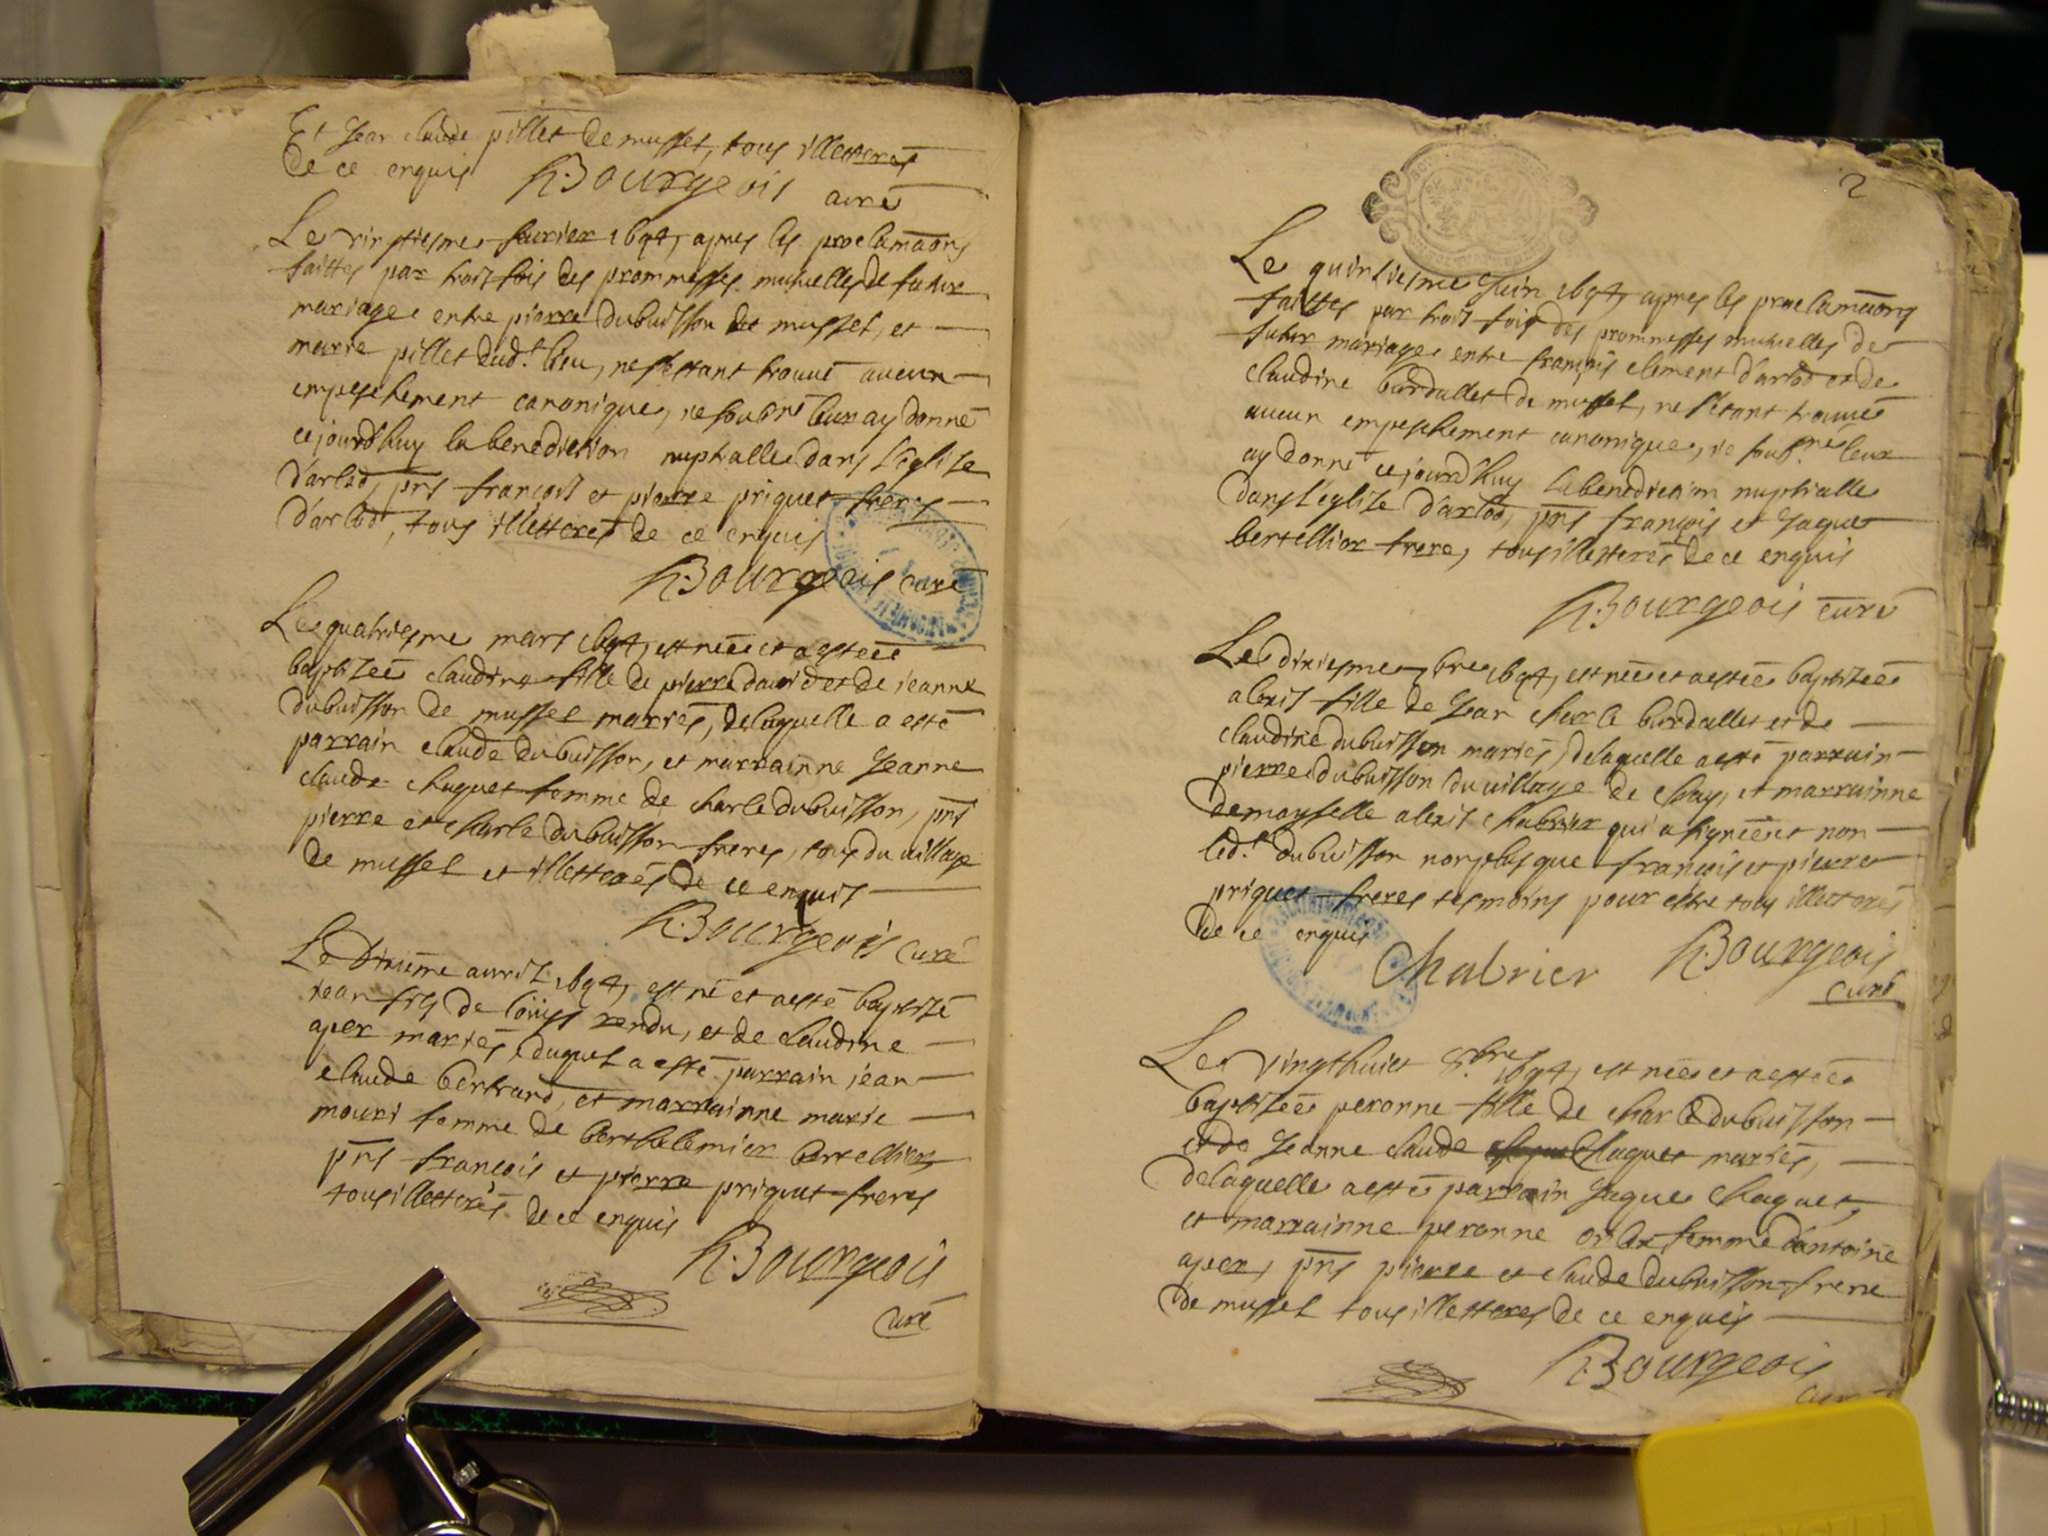 Et Jean claude pillet de mussel, tous illetterés
de ce enquis h. Bourgeois curé
Le vingtiesme feurier 1694, apres les proclamaõns
faittes par trois fois des prommesses mutuelles de futur
mariage entre pierre dubuisson de mussel, et
marie pillet dud.t lieu, ne s'estant trouué aucun
empeschement canonique, je soub.né leur ay donné
ce jourd'huy la benediction nuptialle dans l'eglise
d'arlod, pñs françois et pierre priquet freres
d'arlod, tous illetterés de ce enquis
h. Bourgeois curé
Le quatriesme mars 1694, est née et a estée
baptizée claudine fille de pierre dauid et de jeanne
dubuisson de mussel mariés, de laquelle a esté
parrain claude dubuisson, et marrainne Jeanne
claude chaquet femme de charle dubuisson, pñs
pierre et charle dubuisson freres, tous du uillage
de mussel et illetterés de ce enquis
h. Bourgeois curé
Le dixiéme auril 1694, est né et a esté baptizé
jean fils de loüis rendu, et de claudine
aper mariés, duquel a esté parrain jean
claude bertrand, et marrainne marie
mouri femme de berthelemier bertellier
pñs françois et pierre priquet freres
tous illetterés de ce enquis
h. Bourgeois
curé
2
Le quinziesme Juin 1694, apres les proclamaõns
faittes par trois fois des prommesses mutuelles de
futur mariage entre françois clement d'arlod et de
claudine burdallet de mussel, ne s'étant trouué
aucun empeschement canonique, je soub.né leur
ay donné ce jourd'huy la benediction nuptialle
dans l'eglise d'arlod, pñs françois et Jaque
bertellier frere, tous illetterés de ce enquis
h. Bourgeois curé
Le dixiesme 7bre 1694, est née et a estée baptizée
alexis fille de Jean charle burdallet et de
claudine dubuisson mariés, de laquelle a esté parrain
pierre dubuisson du uillage de chay, et marrainne
demoyselle alexis chabrier qui a signée et non
led.t dubuisson non plus que françois et pierre
priquet freres tesmoins pour estre tous illetterés
de ce enquis
Chabrier h. Bourgeois
curé
Le vingthuict 8.bre 1694, est née et a estée
baptizée peronne fille de charle dubuisson
et de Jeanne claude Chaquet mariés,
de laquelle a esté parrain Jaque Chaquet,
et marrainne peronne femme d'antoine
aper, pñs pierre et claude dubuisson frere
de mussel tous illetterés de ce enquis
h. Bourgeois
curé